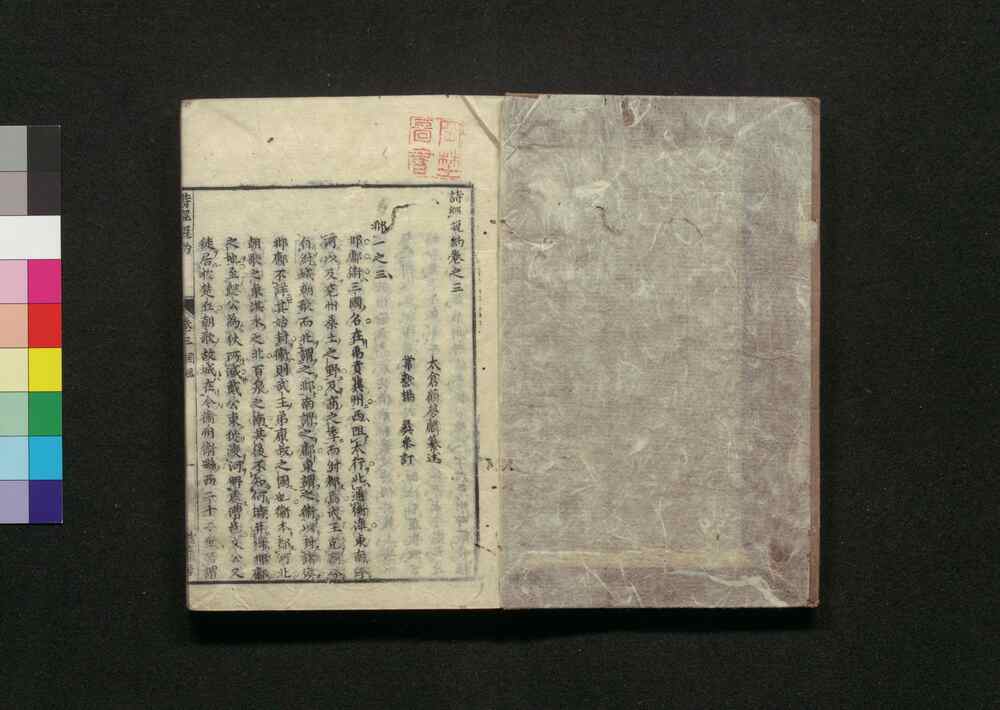 詩經說約卷之三
太倉顧夢麟纂述
常熟楊 彝參訂
邶一之三
邶鄘衛三國名在禹貢冀州西阻太行北逾衡漳東南跨
河以及兗州桑土之野及商之季而紂都焉武王克商分
自紂城朝歌而北謂之邶南謂之鄘東謂之衛以封諸侯
邶鄘不詳其始封衛則武王弟康叔之國也衛本都河北
朝歌之東淇水之北百泉之南其後不知何時并得邶鄘
之地至懿公為狄所滅戴公東徙渡河野處漕邑文公又
徙居於楚丘朝歌故城在今衛州衛縣西二十二里所謂